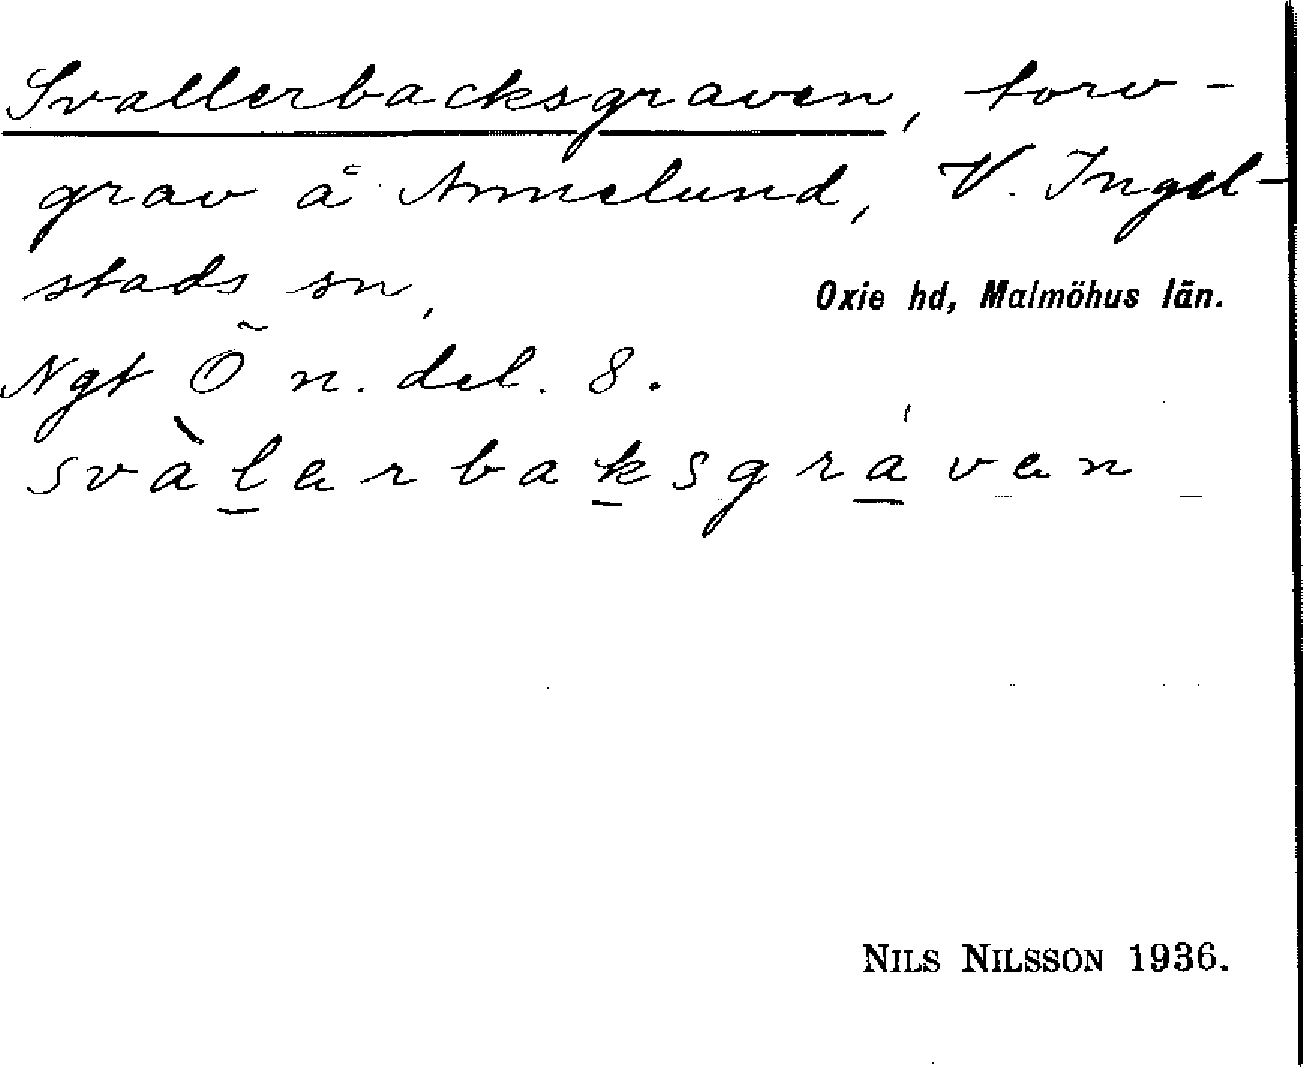 Svallerbacksgraven, torv-
grav å Annelund, V. Ingel-
stads sn,
Oxie hd, Malmöhus län.
Ngt Ö n. del. 8.
svàlerbaksgráven
NILS NILSSON 1936.